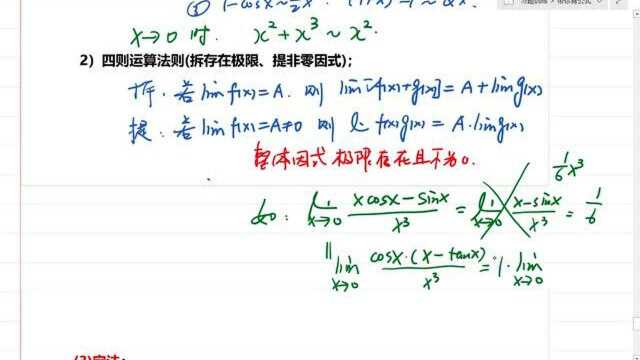 ③ 1-cosx~½x²
x→0 时. x²+x³~x².
2) 四则运算法则(拆存在极限、提非零因式);
拆. 若 lim f(x)=A. 则 lim[f(x)+g(x)]=A+lim g(x)
提: 若 lim f(x)=A≠0 则 lim f(x)g(x)=A·lim g(x)
整体因式极限存在且不为0.
1/6 x³
lim x→0 (xcosx-sinx)/x³ = lim x→0 (x-sinx)/x³ = 1/6
|| lim x→0 cosx·(x-tanx)/x³ = 1·lim x→0